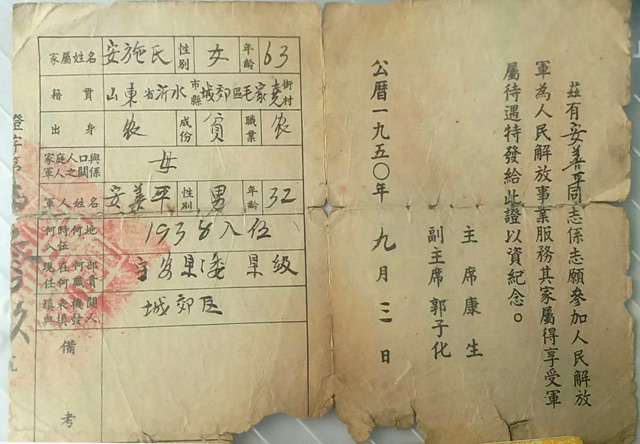 茲有安善平同志係志願參加人民解放
軍為人民解放事業服務其家屬得享受軍
屬待遇特發給此證以資紀念。
主席康生
副主席郭子化
公曆一九五〇年 九月 三日
家屬姓名 安施氏 性別 女 年齡 63
籍貫 山東省沂水市縣城郊區毛家堯街村
出身 農 成份 貧 職業 农
家庭人口與軍人之關係 母
軍人姓名 安善平 性別 男 年齡 32
何時何地入伍 1938入伍
現在何部任何職 縣級
填發機關與填發人 城郊区
備考
證字第